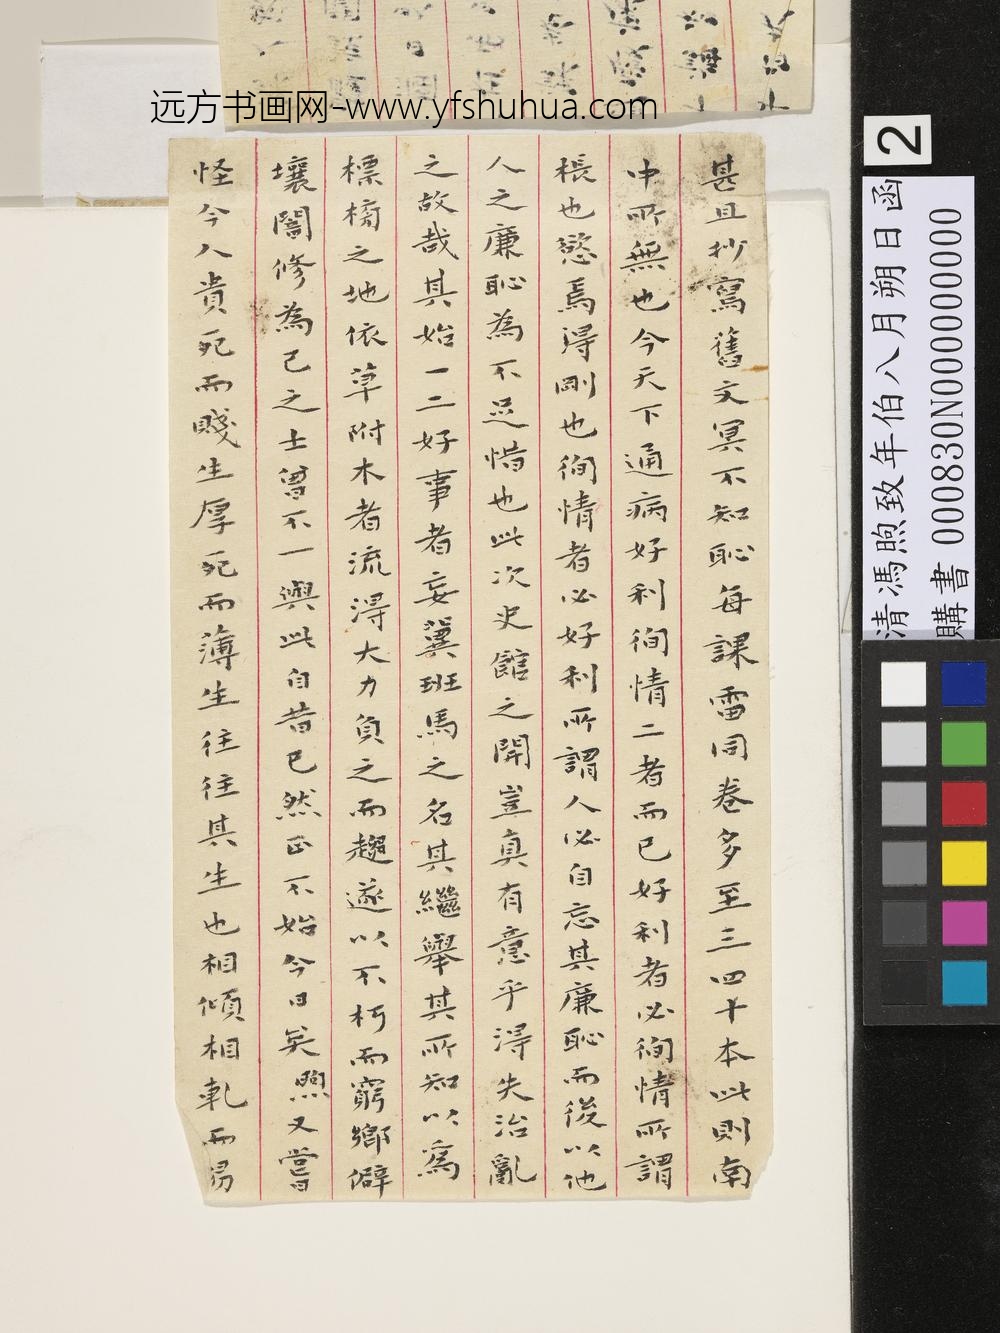 远方书画网-www.yfshuhua.com
甚且抄寫舊文冥不知恥每課雷同卷多至三四十本此則南
中所無也今天下通病好利徇情二者而已好利者必徇情所謂
棖也慾焉得剛也徇情者必好利所謂人必自忘其廉恥而後以他
人之廉恥為不足惜也此次史館之開豈真有意乎得失治亂
之故哉其始一二好事者妄冀班馬之名其繼舉其所知以為
標榜之地依草附木者流得大力負之而趨遂以不朽而窮鄉僻
壤闇修為己之士曾不一與此自昔已然正不始今日矣煦又嘗
怪今人貴死而賤生厚死而薄生往往其生也相傾相軋而易
2
清馮煦致年伯八月朔日函
購書 000830N000000000